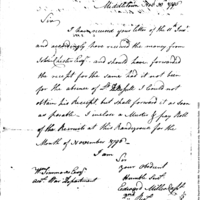 Middletown
Sir
I have received your letter of the 11th
and accordingly have received the money from
and should have forwarded
the receipt for the same had it not been
for the absence of
obtain his receipt but shall forward it as soon
as possible. I enclose a Muster & pay Roll
of the Recruits at this Rendezvous for the
Month of November 1798
I am
Sir
your Obedient
Humble Servt
Edward Miller Capt
2nd Regt
War Department